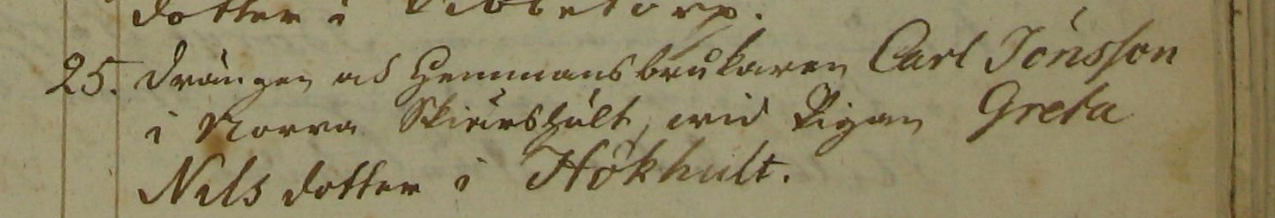 dotter i Ribbetorp.
25. Drängen ad Hemmansbrukaren Carl Jönsson
i Norra Skiärshult, wid Pigan Greta
Nils dotter i Hökhult.